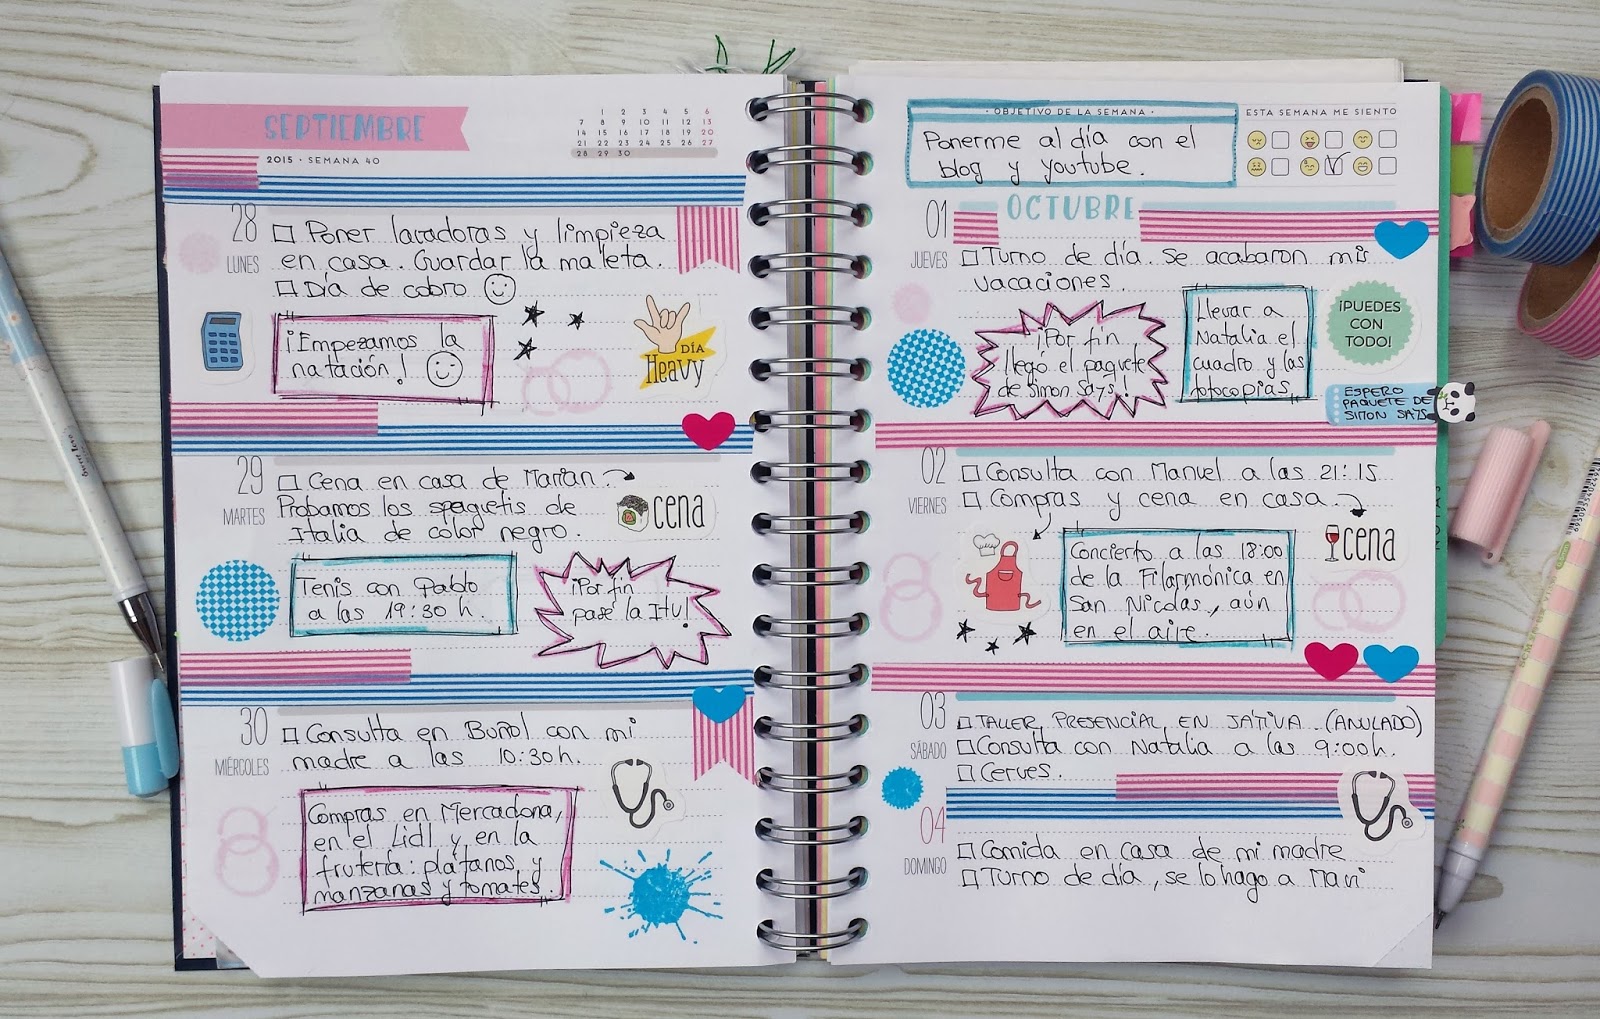 SEPTIEMBRE
2015 · SEMANA 40
1 2 3 4 5 6
7 8 9 10 11 12 13
14 15 16 17 18 19 20
21 22 23 24 25 26 27
28 29 30
28
LUNES
Poner lavadoras y limpieza
en casa. Guardar la maleta.
Día de cobro
¡Empezamos la
natación!
DÍA
Heavy
29
MARTES
Cena en casa de Marian
Probamos los spaguetis de
Italia de color negro.
cena
Tenis con Pablo
a las 19:30 h.
¡Por fin
pasé la Itv!
30
MIÉRCOLES
Consulta en Buñol con mi
madre a las 10:30h.
Compras en Mercadona,
en el Lidl y en la
frutería: plátanos, y
manzanas y tomates.
· OBJETIVO DE LA SEMANA ·
Ponerme al día con el
blog y youtube.
ESTA SEMANA ME SIENTO
OCTUBRE
01
JUEVES
Turno de día. Se acabaron mis
vacaciones.
¡Por fin
llegó el paquete
de Simon Says!
Llevar a
Natalia el
cuadro y las
fotocopias.
¡PUEDES
CON
TODO!
ESPERO
PAQUETE DE
SIMON SAYS
02
VIERNES
Consulta con Manuel a las 21:15
Compras y cena en casa.
cena
Concierto a las 18:00
de la Filarmónica en
San Nicolas, aún
en el aire.
03
SÁBADO
TALLER PRESENCIAL EN JÁTIVA. (ANULADO)
Consulta con Natalia a las 9:00h.
Cerves.
04
DOMINGO
Comida en casa de mi madre
Turno de día, se lo hago a Mavi